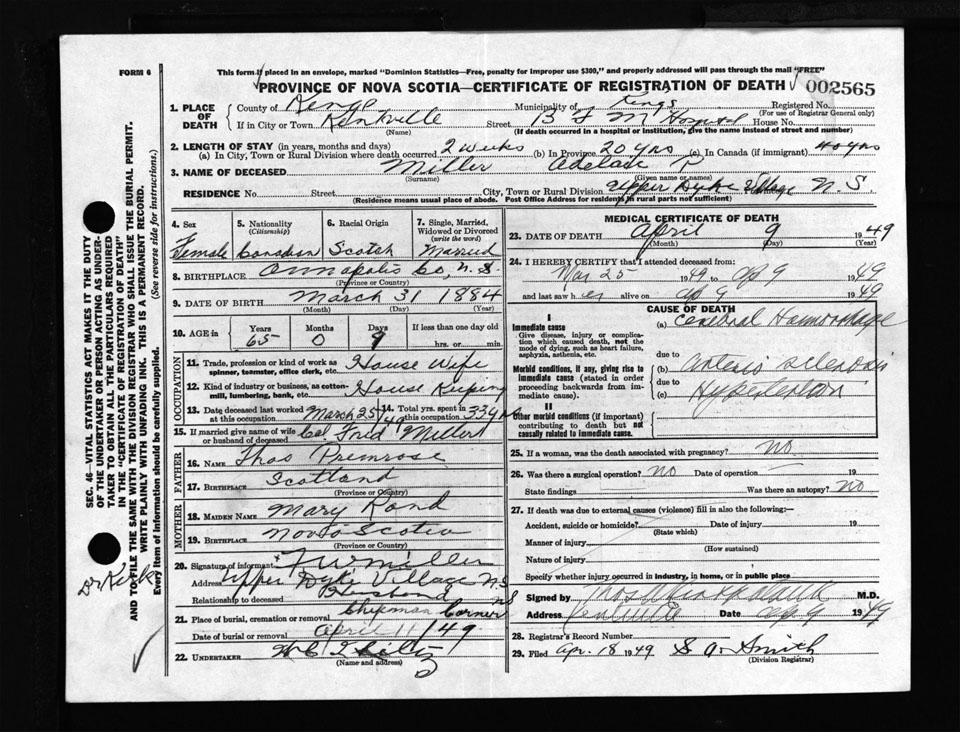 FORM 6
This form if placed in an envelope, marked "Dominion Statistics—Free, penalty for improper use $300," and properly addressed will pass through the mail "FREE"
PROVINCE OF NOVA SCOTIA—CERTIFICATE OF REGISTRATION OF DEATH 002565
SEC. 46—VITAL STATISTICS ACT MAKES IT THE DUTY
OF THE UNDERTAKER OR PERSON ACTING AS UNDER-
TAKER TO OBTAIN ALL THE PARTICULARS REQUIRED
IN THE "CERTIFICATE OF REGISTRATION OF DEATH"
AND TO FILE THE SAME WITH THE DIVISION REGISTRAR WHO SHALL ISSUE THE BURIAL PERMIT.
WRITE PLAINLY WITH UNFADING INK. THIS IS A PERMANENT RECORD.
Every item of Information should be carefully supplied. (See reverse side for instructions.)
Dr Kirk
1. PLACE OF DEATH County of Kings Municipality of Kings Registered No.
(For use of Registrar General only)
If in City or Town Kentville Street B F M Hospital House No.
(Name) (If death occurred in a hospital or institution, give the name instead of street and number)
2. LENGTH OF STAY (in years, months and days)
(a) In City, Town or Rural Division where death occurred 2 weeks (b) In Province 20 yrs (c) In Canada (if immigrant) 40 yrs
3. NAME OF DECEASED Miller Adelaie P
(Surname) (Given name or names)
RESIDENCE No. Street City, Town or Rural Division Upper Dyke Village N S
(Residence means usual place of abode. Post Office Address for residents in rural parts not sufficient)
4. Sex 5. Nationality (Citizenship) 6. Racial Origin 7. Single, Married, Widowed or Divorced (write the word)
Female Canadian Scotch Married
8. BIRTHPLACE Annapolis Co. N. S.
(Province or Country)
9. DATE OF BIRTH March 31 1884
(Month) (Day) (Year)
10. AGE in Years Months Days If less than one day old
65 0 9 hrs. or min.
OCCUPATION
11. Trade, profession or kind of work as spinner, teamster, office clerk, etc. House Wife
12. Kind of industry or business, as cotton-mill, lumbering, bank, etc. House Keeping
13. Date deceased last worked at this occupation March 25/49 14. Total yrs. spent in this occupation 33 yrs
15. If married give name of wife or husband of deceased Fred Miller
FATHER
16. NAME Thos Primrose
17. BIRTHPLACE Scotland
(Province or Country)
MOTHER
18. MAIDEN NAME Mary Rand
19. BIRTHPLACE Nova Scotia
(Province or Country)
20. Signature of informant F W Miller
Address Upper Dyke Village N S
Relationship to deceased Husband
21. Place of burial, cremation or removal Chipman Corner NS
Date of burial or removal April 11/49
22. UNDERTAKER W C Hiltz
(Name and address)
MEDICAL CERTIFICATE OF DEATH
23. DATE OF DEATH April 9 1949
(Month) (Day) (Year)
24. I HEREBY CERTIFY that I attended deceased from:
Mar 25 1949 to Ap 9 1949
and last saw her alive on Ap 9 1949
CAUSE OF DEATH
I
Immediate cause
Give disease, injury or complication which caused death, not the mode of dying, such as heart failure, asphyxia, asthenia, etc.
(a) Cerebral Hemorrhage
due to
Morbid conditions, if any, giving rise to immediate cause (stated in order proceeding backwards from immediate cause).
(b) Arterio sclerosis
due to
(c) Hypertension
II
Other morbid conditions (if important) contributing to death but not causally related to immediate cause.
25. If a woman, was the death associated with pregnancy? no
26. Was there a surgical operation? no Date of operation 19
State findings Was there an autopsy? no
27. If death was due to external causes (violence) fill in also the following:—
Accident, suicide or homicide? Date of injury 19
(State which)
Manner of injury
(How sustained)
Nature of injury
Specify whether injury occurred in industry, in home, or in public place
Signed by M.D.
Address Kentville Date Ap 9 1949
28. Registrar's Record Number
29. Filed Apr. 18 1949 S A Smith
(Division Registrar)